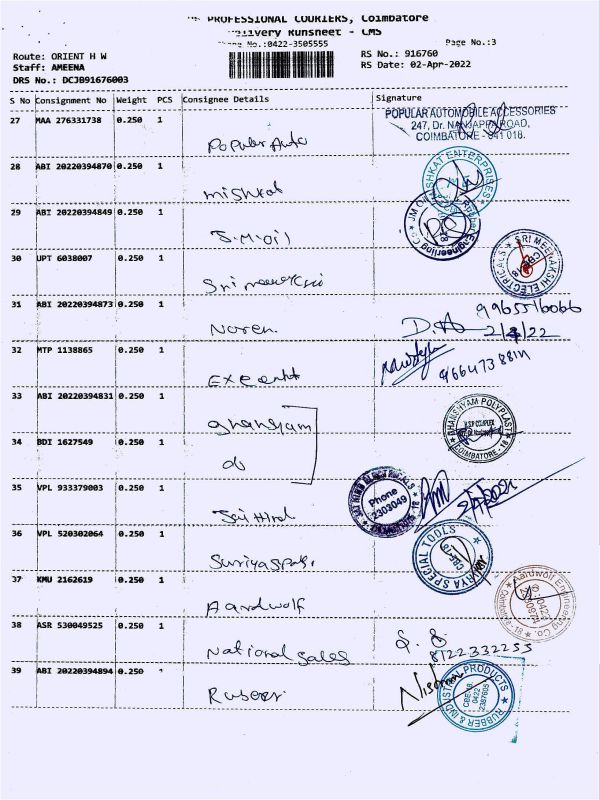 PROFESSIONAL COURIERS, Coimbatore
Delivery Runsheet - CMS
Phone No.:0422-3505555 Page No.:3
Route: ORIENT H W RS No.: 916760
Staff: AMEENA RS Date: 02-Apr-2022
DRS No.: DCJB91676003
S No Consignment No Weight PCS Consignee Details Signature
27 MAA 276331738 0.250 1
POPULAR AUTOMOBILE ACCESSORIES
247, Dr. NANJAPPA ROAD,
COIMBATORE - 641 018.
Popular Auto
28 ABI 20220394870 0.250 1
MISHKAT ENTERPRISES
mishkat
29 ABI 20220394849 0.250 1
Engineering Co
J.M.oil
30 UPT 6038007 0.250 1
SRI MEENAKSHI ELECTRICALS
Sri meenakshi
31 ABI 20220394873 0.250 1
9965516066
Naren
2/4/22
32 MTP 1138865 0.250 1
33 ABI 20220394831 0.250 1
GHANSHYAM POLYPLAST
V.S.P COMPLEX
COIMBATORE - 18
ghansyam
34 BDI 1627549 0.250 1
do
35 VPL 933379003 0.250 1
JAI HIND ELECTRICALS
Phone
2303049
Jai Hind
36 VPL 520302064 0.250 1
SPECIAL TOOLS
CBE-18
37 KMU 2162619 0.250 1
Aardwolf Engineering Co.
Aardwolf
38 ASR 530049525 0.250 1
S. B.
8122332255
National sales
39 ABI 20220394894 0.250
RUBBER & INDUSTRIAL PRODUCTS
CBE-18
0422
2397605